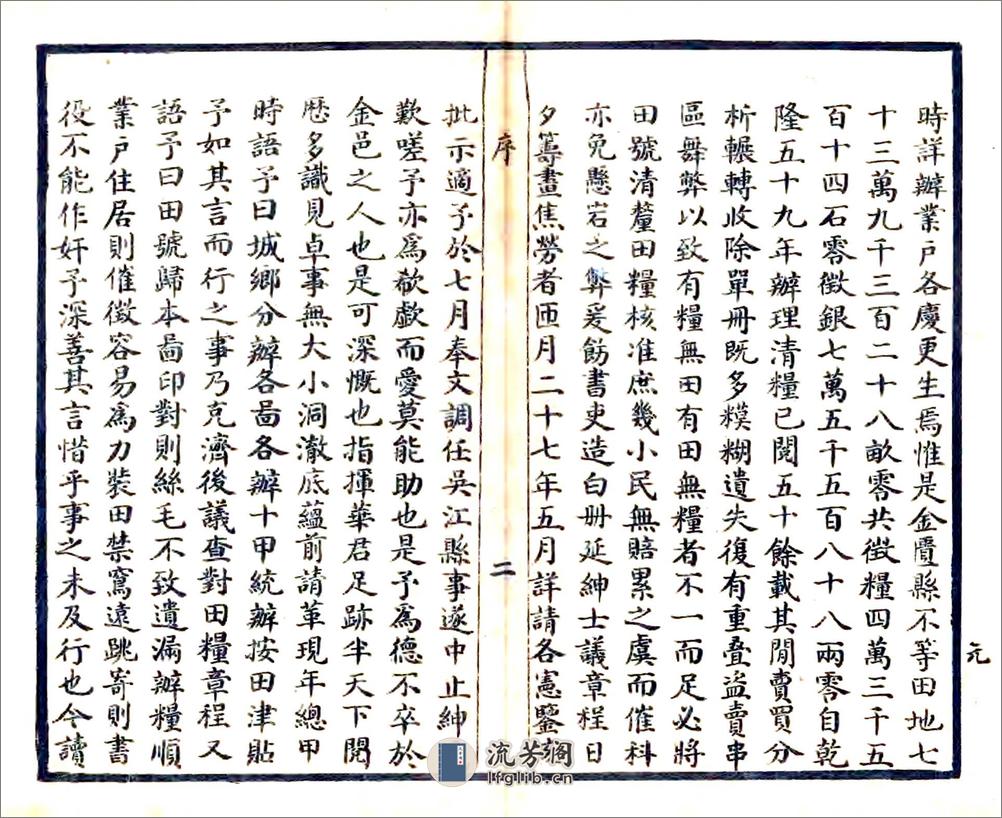 時詳辦業戶各慶更生焉惟是金匱縣不等田地七
十三萬九千三百二十八畝零共徵糧四萬三千五
百十四石零徵銀七萬五千五百八十八兩零自乾
隆五十九年辦理清糧已閱五十餘載其閒賣買分
析輾轉收除單冊既多糢糊遺失復有重疊盜賣串
區舞弊以致有糧無田有田無糧者不一而足必將
田號清釐田糧核准庶幾小民無賠累之虞而催科
亦免懸宕之弊爰飭書吏造白冊延紳士議章程日
夕籌畫焦勞者匝月二十七年五月詳請各憲鑒
序
二
批示適予於七月奉文調任吳江縣事遂中止紳
歎嗟予亦爲欷歔而愛莫能助也是予爲德不卒於
金邑之人也是可深慨也指揮華君足跡半天下閱
歷多識見卓事無大小洞澈底蘊前請革現年總甲
時語予曰城鄉分辦各啚各辦十甲統辦按田津貼
予如其言而行之事乃克濟後議查對田糧章程又
語予曰田號歸本啚印對則絲毛不致遺漏辦糧順
業戶住居則催徵容易爲力裝田禁窵遠跳寄則書
役不能作奸予深善其言惜乎事之未及行也今讀
元
流芳閣
lfglib.cn